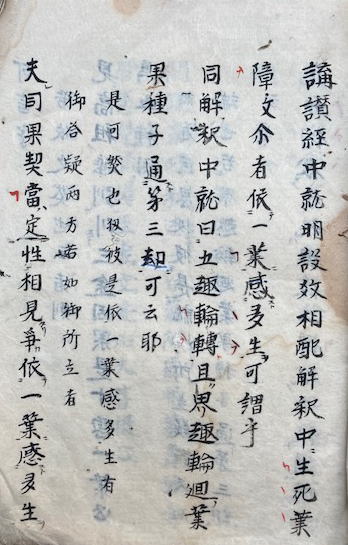 講讃經中就明設效相配解釈中生死業
障文尓者依一業感多生可謂乎
同解釈中就曰五趣輪轉且界趣輪廻業
果種子通第三却可云耶
是可然也彼是依一業感多生有
御答疑両方若如御所立者
夫同果契當定性相見争依一業感多生